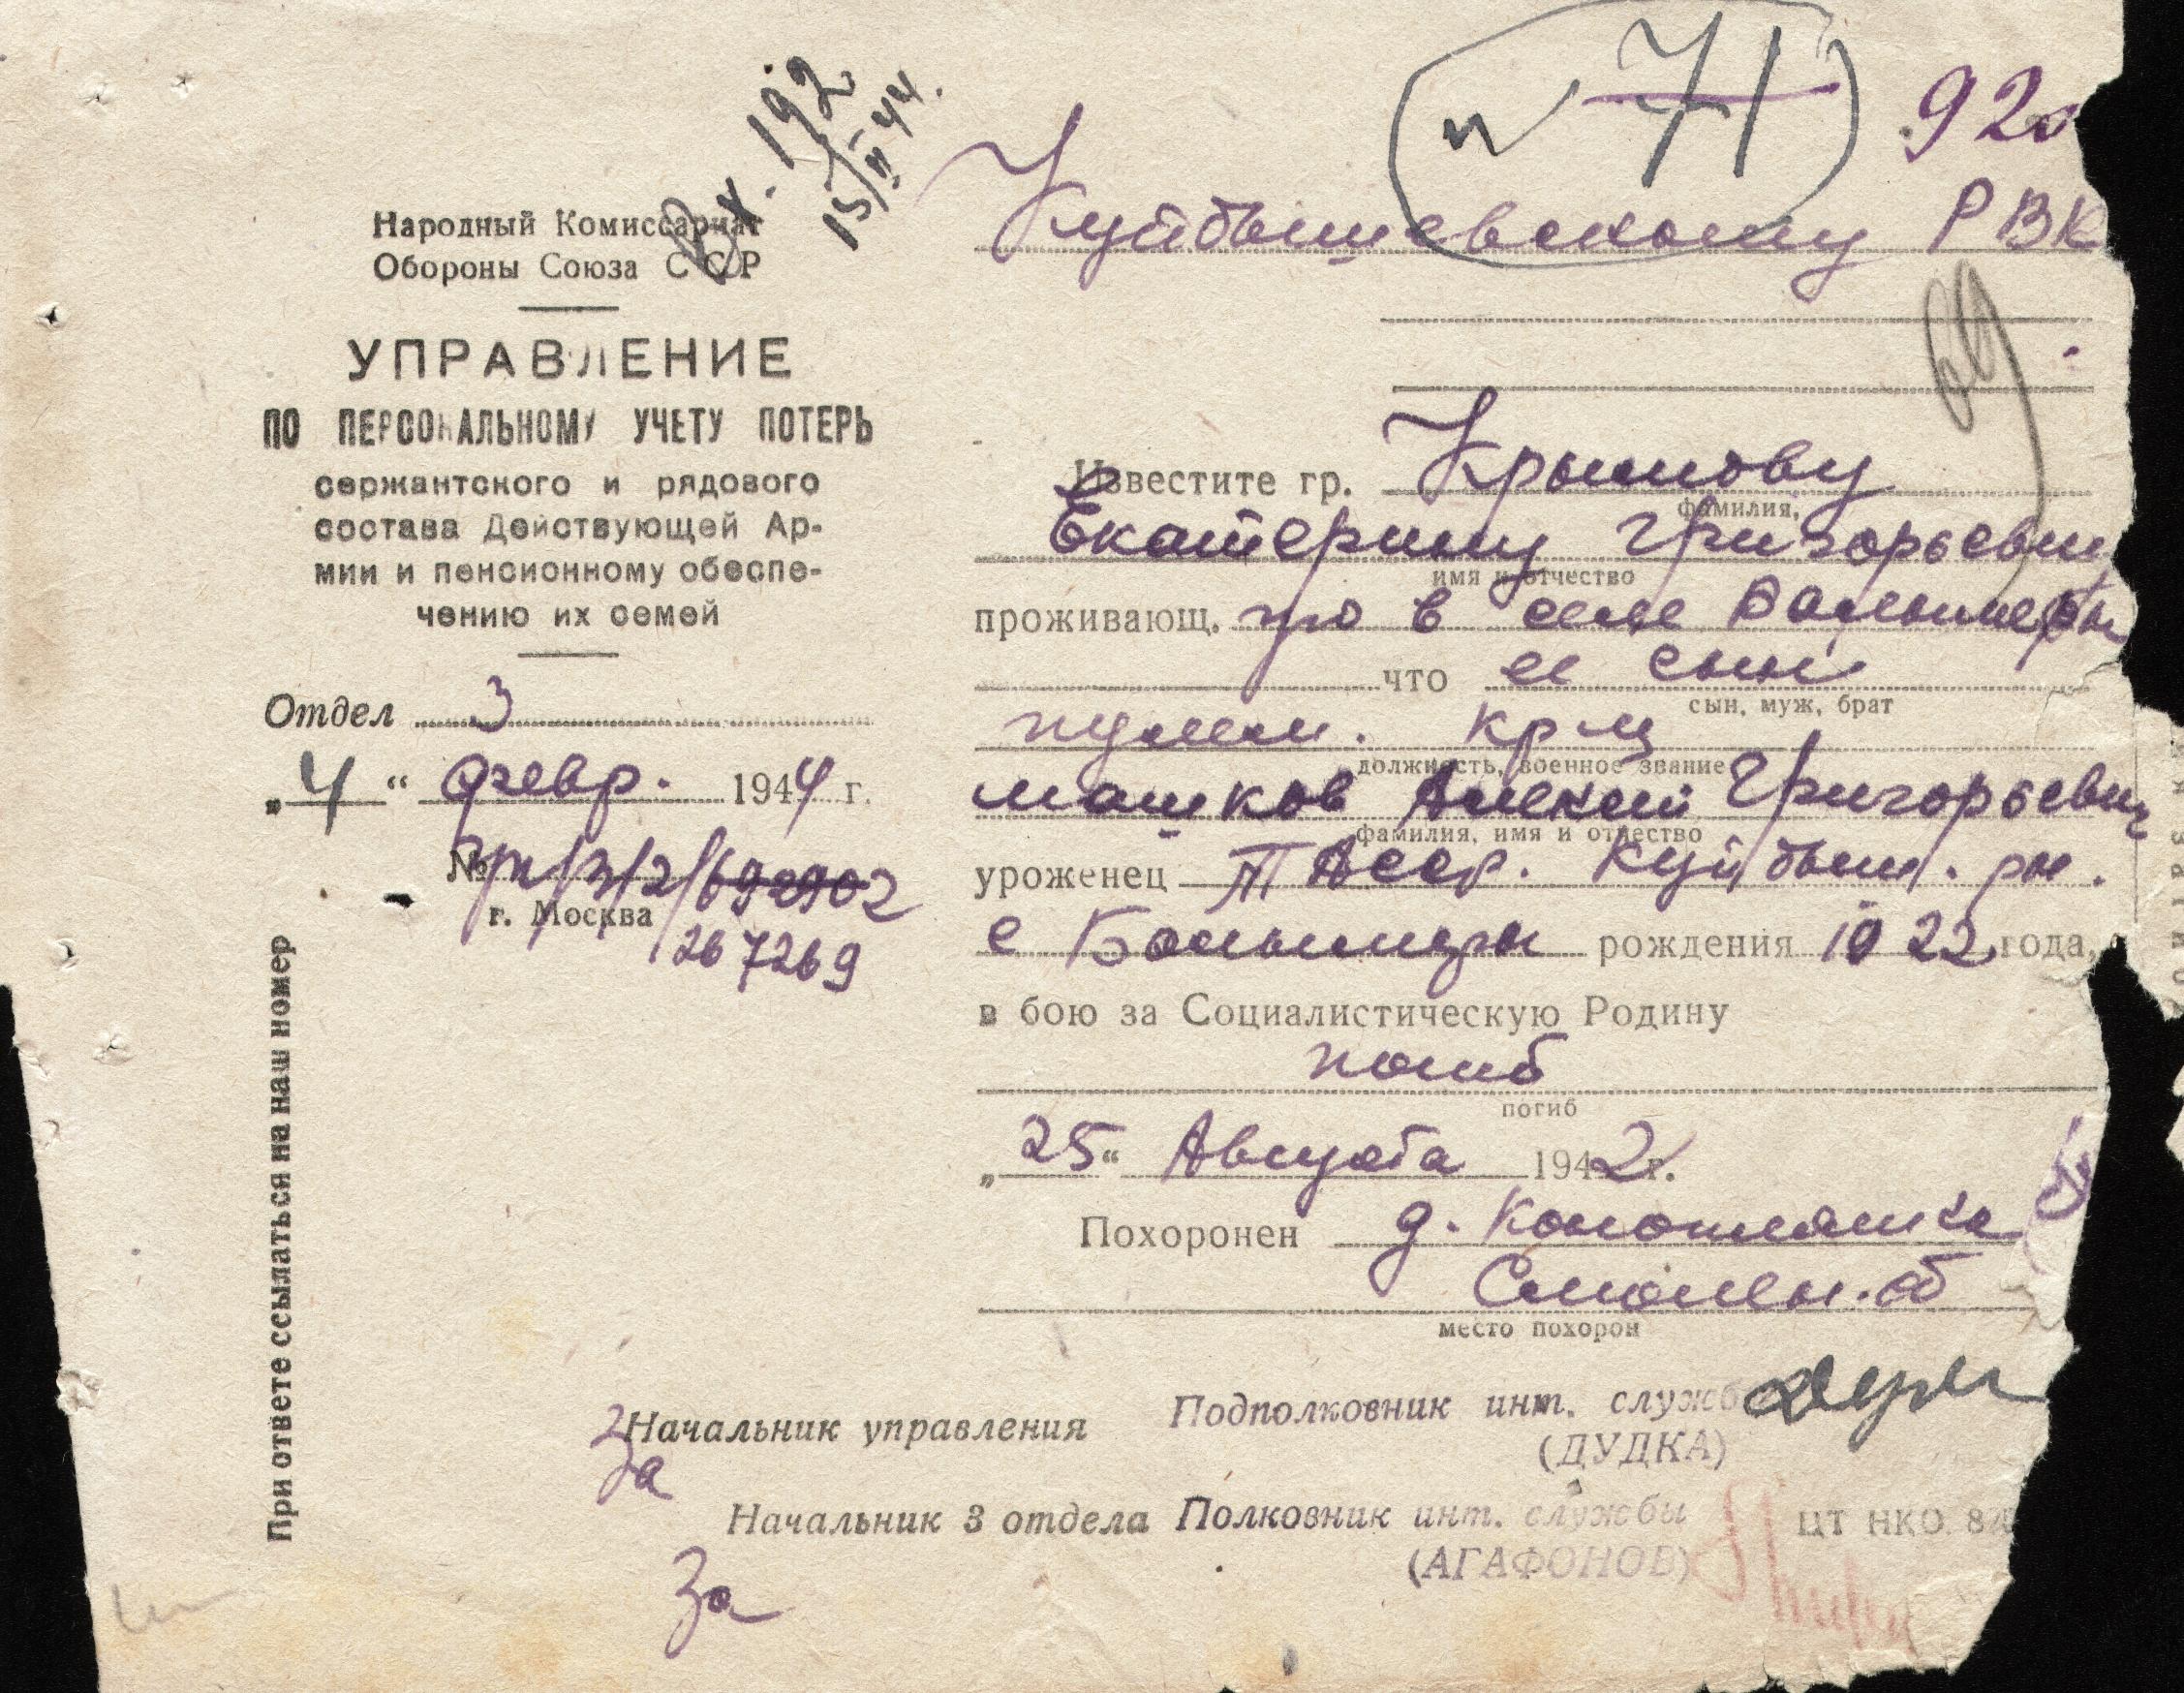 Вх. 192
15/II 44.
71
920
Народный Комиссариат
Обороны Союза ССР
УПРАВЛЕНИЕ
ПО ПЕРСОНАЛЬНОМУ УЧЕТУ ПОТЕРЬ
сержантского и рядового
состава Действующей Ар-
мии и пенсионному обеспе-
чению их семей
Отдел 3
„4“ февр. 1944 г.
№
г. Москва
267269
При ответе ссылаться на наш номер
Куйбышевскому РВК
69
Известите гр. Крымову
фамилия,
Екатерину Григорьевну
имя и отчество
проживающ. ую в селе
что ее сын
сын, муж, брат
пулем. кр-ц
должность, военное звание
Машков Алексей Григорьевич
фамилия, имя и отчество
уроженец ТАССР. Куйбыш. рн.
с рождения 1922 года,
в бою за Социалистическую Родину
погиб
погиб
„25“ Августа 1942 г.
Похоронен д.
Смолен. об
место похорон
За Начальник управления Подполковник инт. службы
(ДУДКА)
Начальник 3 отдела Полковник инт. службы
(АГАФОНОВ)
За
ЦТ НКО. 8